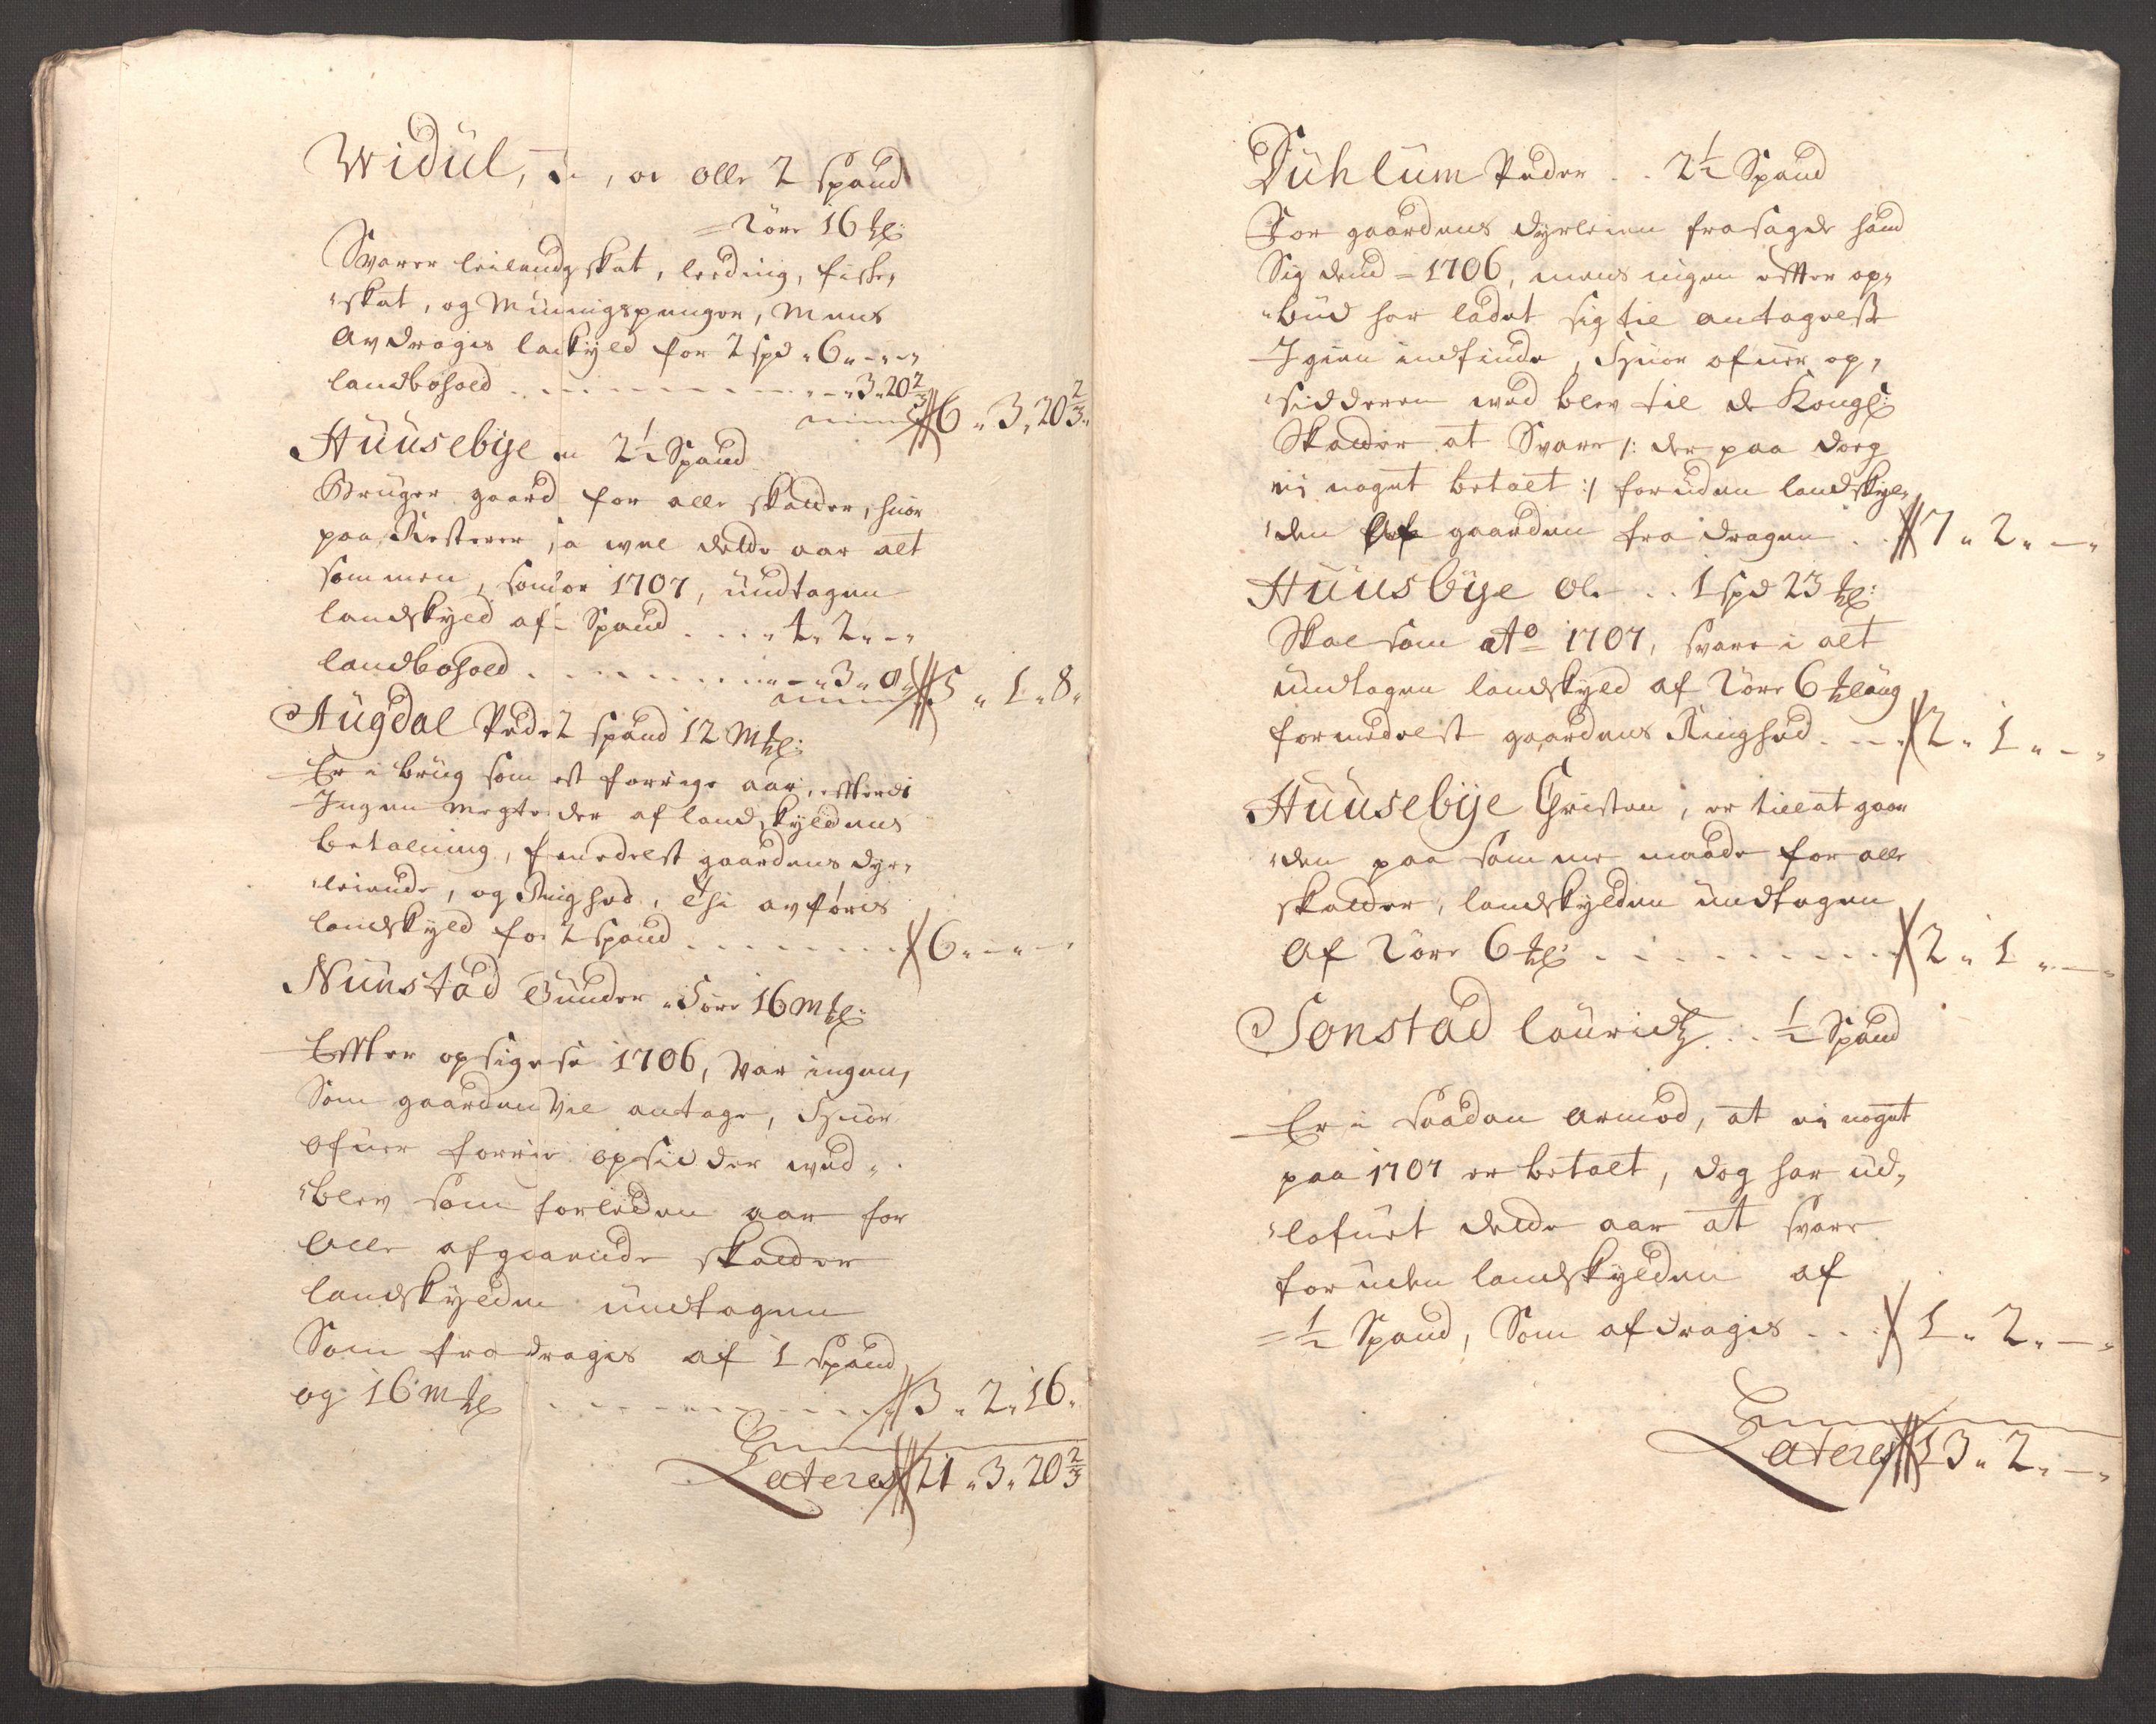 Widül, Ol, or olle 2 spand
= 2 öre 16 ℔:
Svarer leilendg skat, leeding, fiske,
"skat, og Münnigspenger, Mens
Avdragis laskyld for 2 spd „ 6 „ - „ -
landbohold . . . „ - „ 3 „ 20 2/3
6 „ 3 „ 20 2/3 „
Hüüsebÿe 2 1/2 Spand
Bruger gaard for alle skatter, huor
paa Resterer, sa wel dette aar alt
sammen, som for 1707, undtagen
landskyld af Spand . . . „ 4 „ 2 „ - „
landbohold . . . „ - „ 3 „ 8
5 „ 1 „ 8 „
Augdal Peder 2 spand 12 m℔:
Er i brüg som est forrige aar, efterdi
Ingen megter der af landskyldens
betalning, formedelst gaardens dyr,
"leiende, og Ringhed, thi avføris
landskyld for 2 spand . . . 6 „ - „ -
Nünstad Gunder 1 öre 16 m℔:
Effter opsigelse 1706, var ingen,
Som gaarden vil antage, Huor
ofuer forrie opsidder wed „
"blev som forleden aar for
Alle afgaaende skatter
landskylden undtagen
Som fradragis af 1 Spand
og 16 m℔ . . . 3 „ 2 „ 16 „
Lateres 21 „ 3 „ 20 2/3
Duhlum Peder . . 2 1/2 Spand
For gaardens dyrleien frasagde hand
Sig dend = 1706, mens ingen effter op,
"bud har ladet sig til antagelse
Igien indfinde, Huor ofuer op,
"sidderen wed blev til de Kongl:
Skatter at Svare /: der paa dog
ei noget betalt :/ foruden landskyl,
"den Af gaarden fra dragen . . 7 „ 2 „ - „
Hüüsbÿe Ole . . 1 spd 23 ℔:
Skal som Ao 1707, svare i alt
undtagen landskyld af 2 öre 6 ℔ laug
formedelst gaardens Ringhed . . . 2 „ 1 „ - „
Hüüsebÿe Christen, er tillat gaar
"den paa samme maade for alle
skatter, landskylden undtagen
Af 2 öre 6 ℔: . . . 2 „ 1 „ - „
Sonstad lauridtz . . 1/2 Spand
Er i saadan armod, at ei noget
paa 1707 er betalt, dog har ud,
"lofuet dette aar at svare
foruden landskylden af
= 1/2 Spand, Som afdragis . . . 1 „ 2 „ - „
Lateres 13 „ 2 „ - „